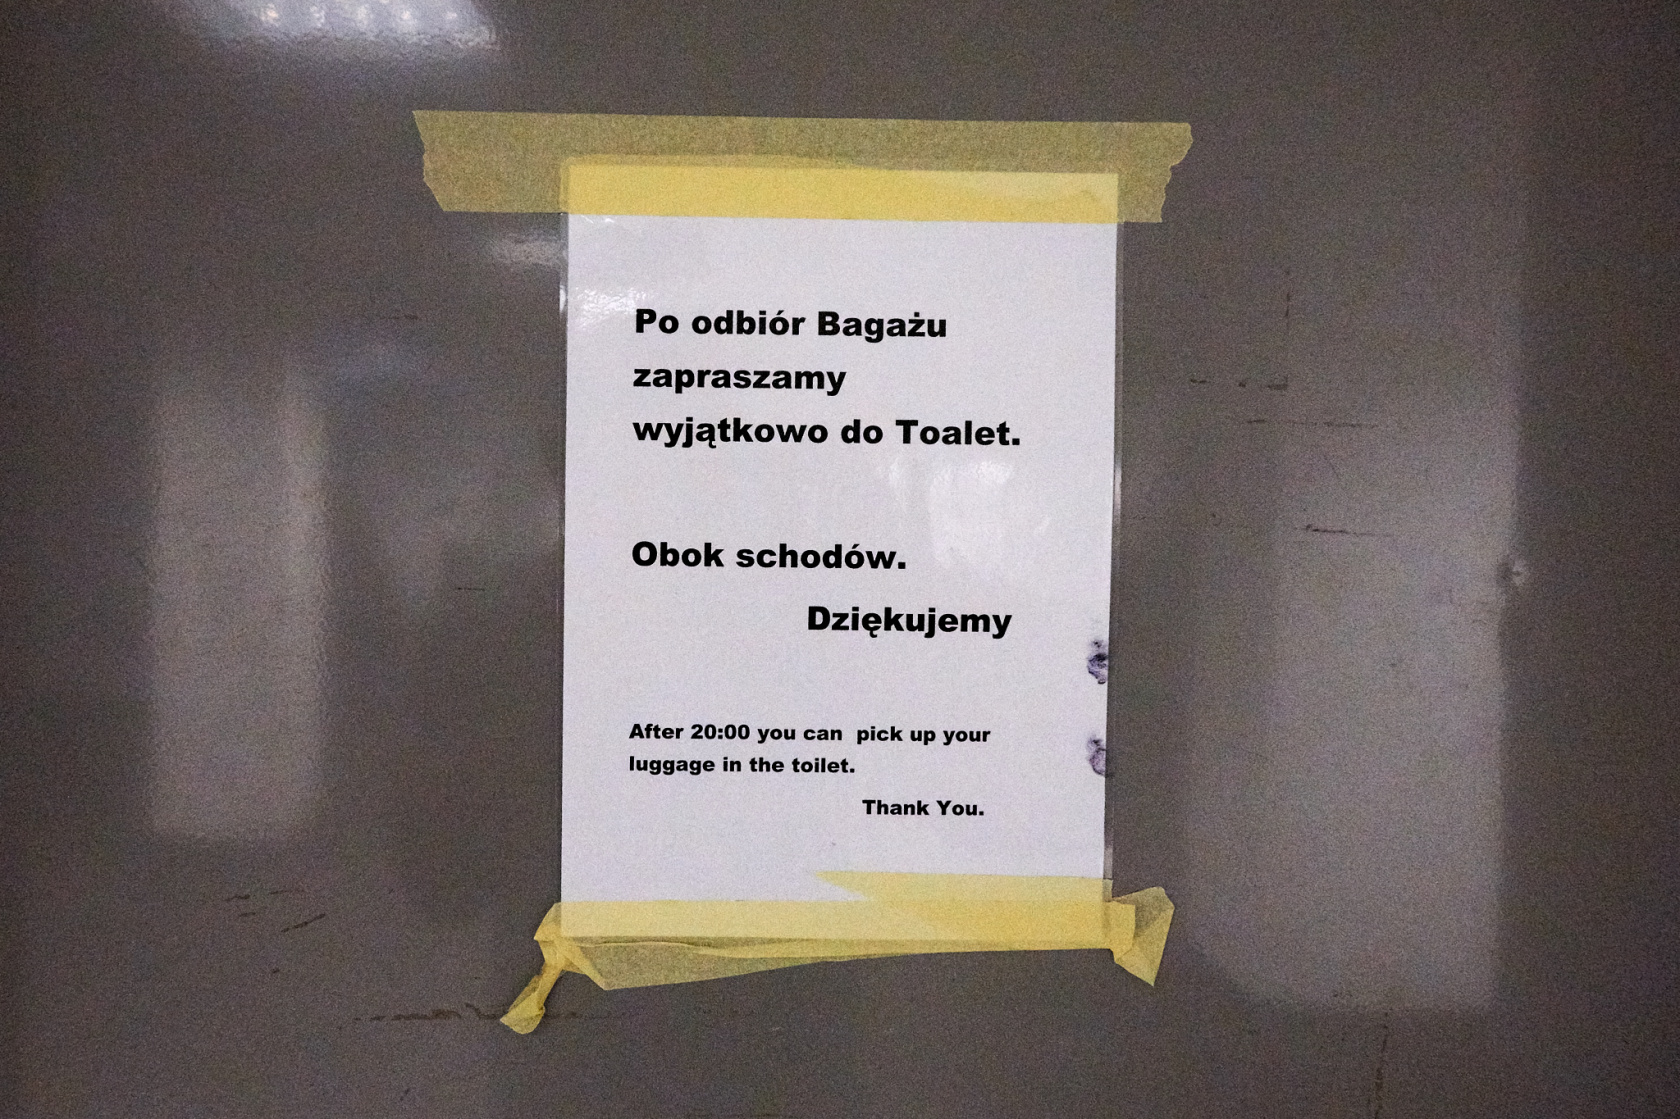 Po odbiór Bagażu
zapraszamy
wyjątkowo do Toalet.
Obok schodów.
Dziękujemy
After 20:00 you can  pick up your
luggage in the toilet.
Thank You.